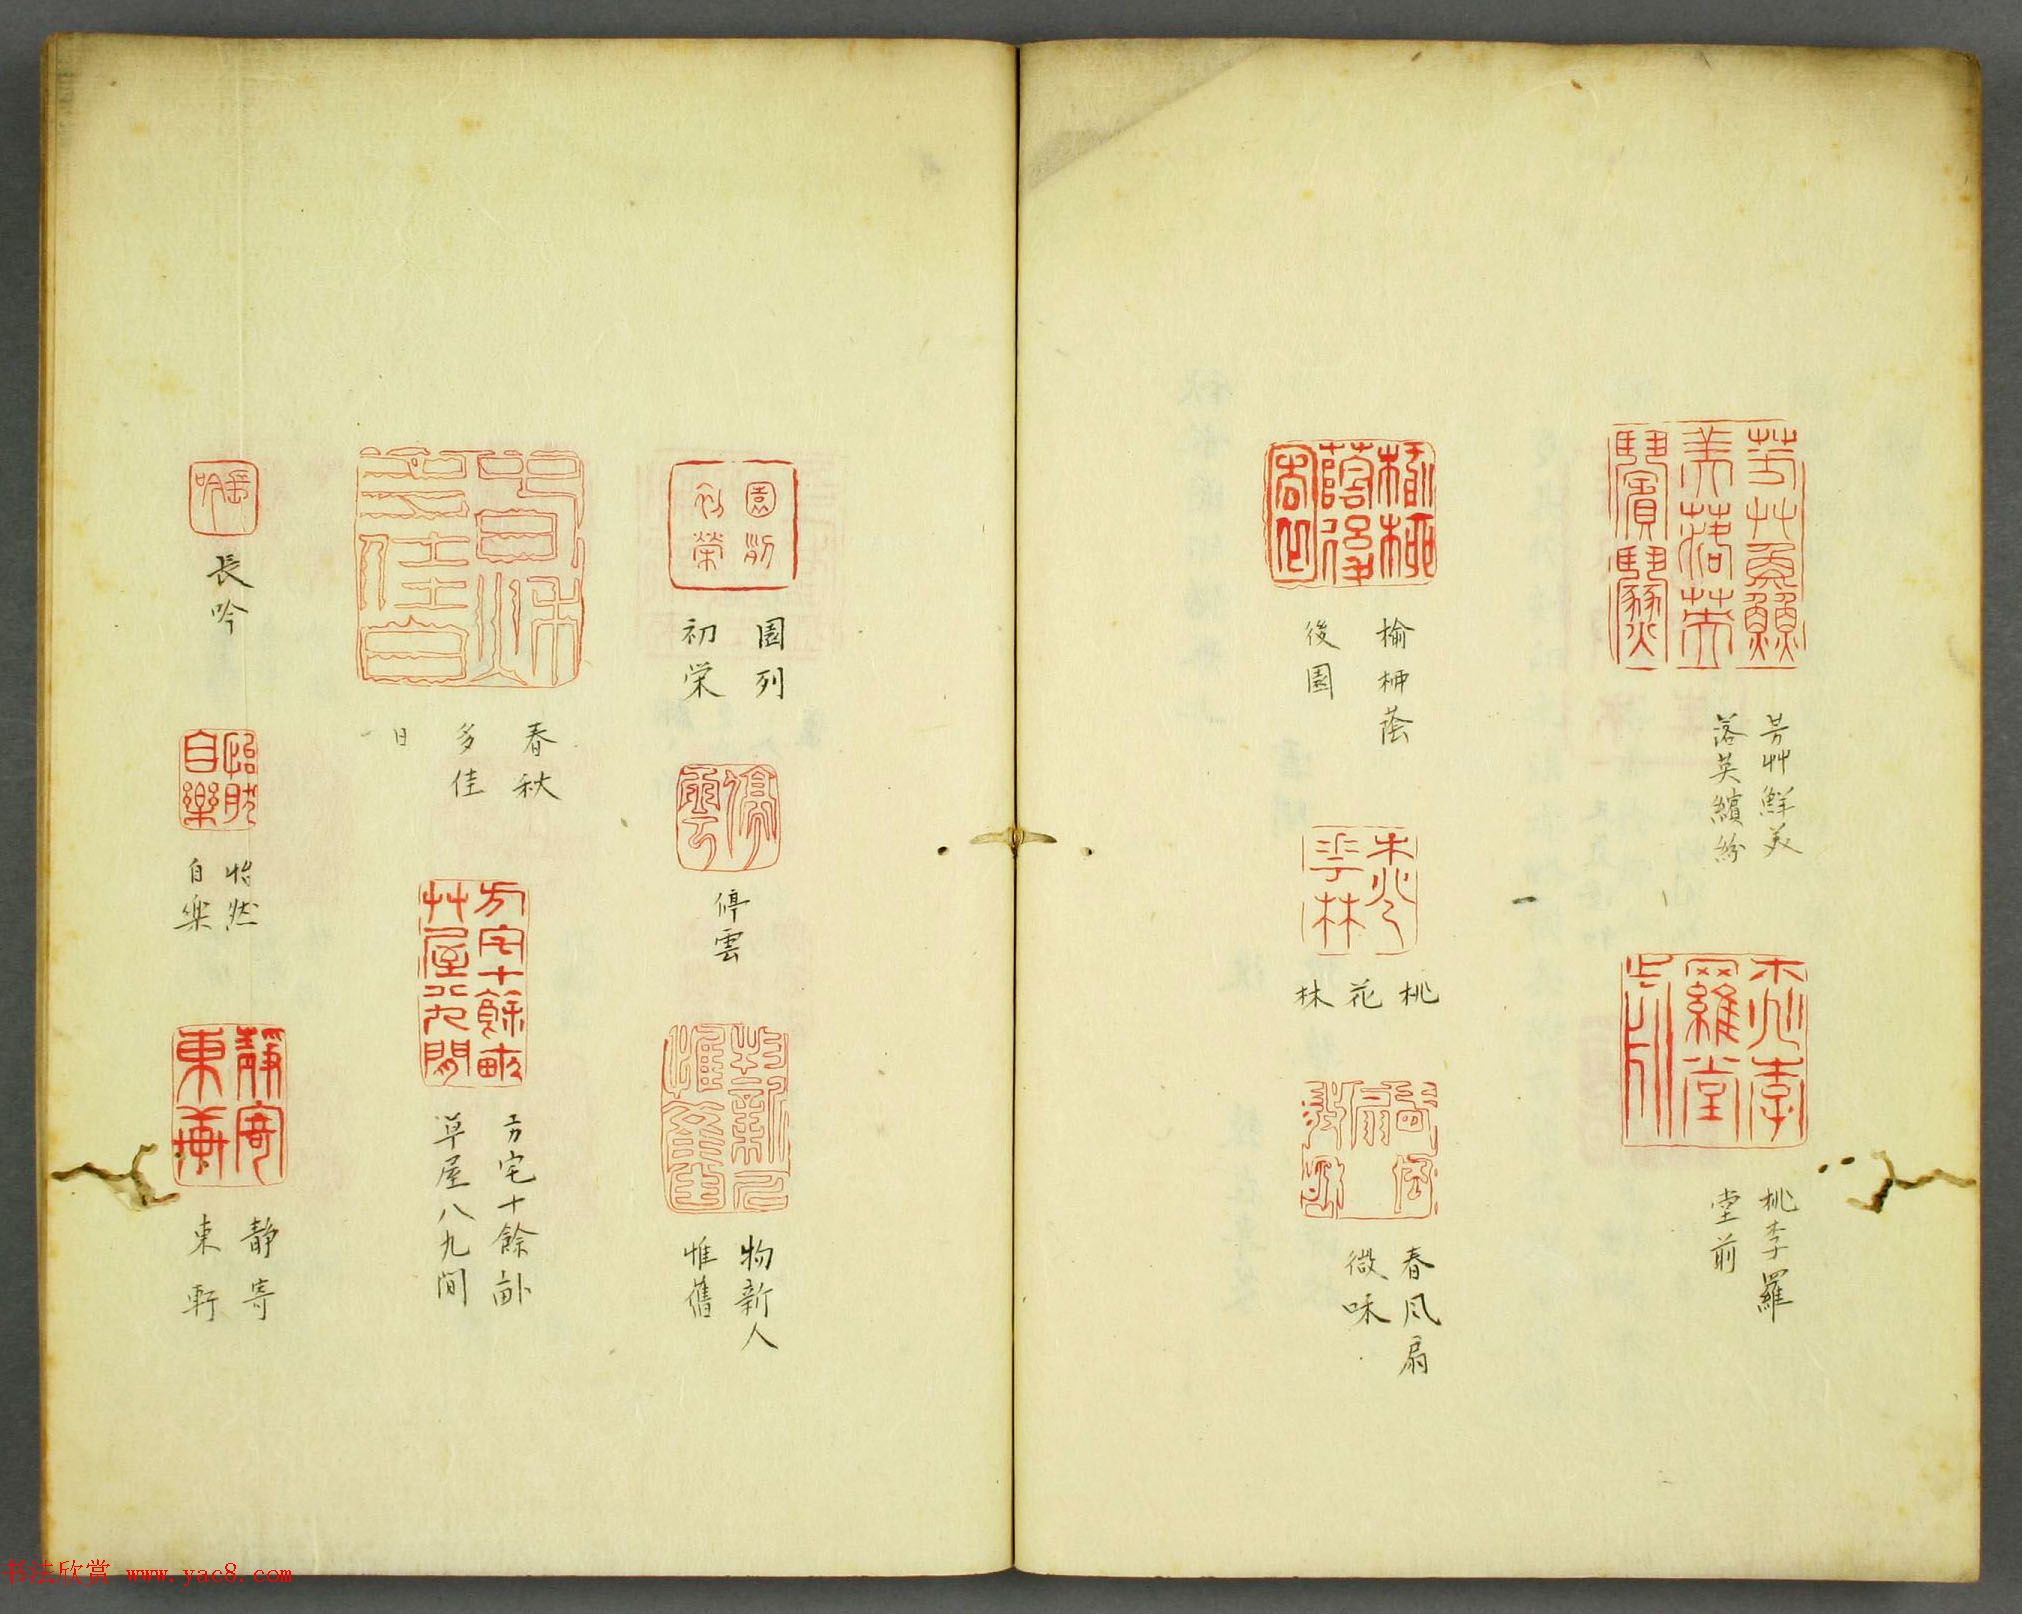 芳艸鮮美
落英繽紛
桃李羅
堂前
榆柳蔭
後園
桃花林
春風扇
微和
園列
初榮
停雲
物新人
惟舊
春秋
多佳
日
方宅十餘畝
草屋八九間
長吟
怡然
自樂
靜寄
東軒
书法欣赏 www.yac8.com